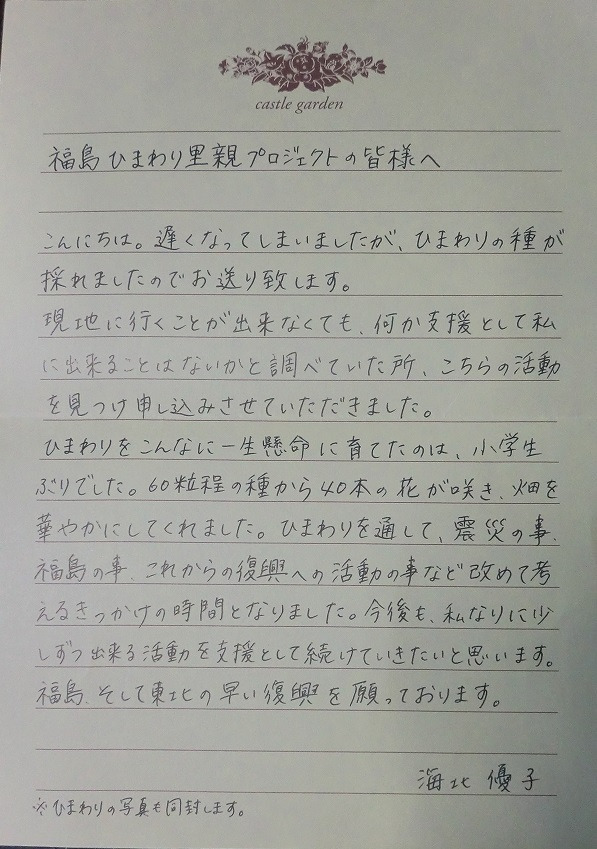 castle garden
福島ひまわり里親プロジェクトの皆様へ
こんにちは。遅くなってしまいましたが、ひまわりの種が
採れましたのでお送り致します。
現地に行くことが出来なくても、何か支援として私
に出来ることはないかと調べていた所、こちらの活動
を見つけ申し込みさせていただきました。
ひまわりをこんなに一生懸命に育てたのは、小学生
ぶりでした。60粒程の種から40本の花が咲き、畑を
華やかにしてくれました。ひまわりを通して、震災の事、
福島の事、これからの復興への活動の事など改めて考
えるきっかけの時間となりました。今後も、私なりに少
しずつ出来る活動を支援として続けていきたいと思います。
福島、そして東北の早い復興を願っております。
海北 優子
※ひまわりの写真も同封します。